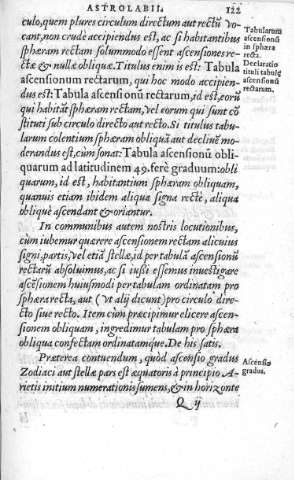 ASTROLABII. 122
culo, quem plures circulum directum aut rectũ vo-
cant, non crudè accipiendus est, ac si habitantibus
sphæram rectam solummodo essent ascensiones re-
ctæ & nullæ obliquæ. Titulus enim is est: Tabula
ascensionum rectarum, qui hoc modo accipien-
dus est: Tabula ascensionũ rectarum, id est, eorũ
qui habitãt sphæram rectam, vel eorum qui sunt cõ
stituti sub circulo directo aut recto. Si titulus tabu-
larum colentium sphæram obliquã aut decliuẽ mo-
derandus est, cùm sonat: Tabula ascensionũ obli-
quarum ad latitudinem 49. ferè graduum: obli
quarum, id est, habitantium sphæram obliquam,
quamuis etiam ibidem aliqua signa rectè, aliqua
obliquè ascendant & oriantur.
In communibus autem nostris locutionibus,
cum iubemur quærere ascensionem rectam alicuius
signi, partis, vel etiã stellæ, id per tabulã ascensionũ
rectarũ absoluimus, ac si iussi essemus inuestigare
ascẽsionem huiusmodi per tabulam ordinatam pro
sphæra recta, aut (vt alij dicunt) pro circulo dire-
cto siue recto. Item cùm præcipimur elicere ascen-
sionem obliquam, ingredimur tabulam pro sphæra
obliqua confectam ordinatamque. De his satis.
Præterea contuendum, quòd ascensio gradus
Zodiaci aut stellæ pars est æquatoris à principio A-
rietis initium numerationis sumens, & in horizonte
Q ij
Tabularum
ascensionũ
in sphæra
recta.
Declaratio
tituli tabulę
ascensionũ
rectarum.
Ascensio
gradus.